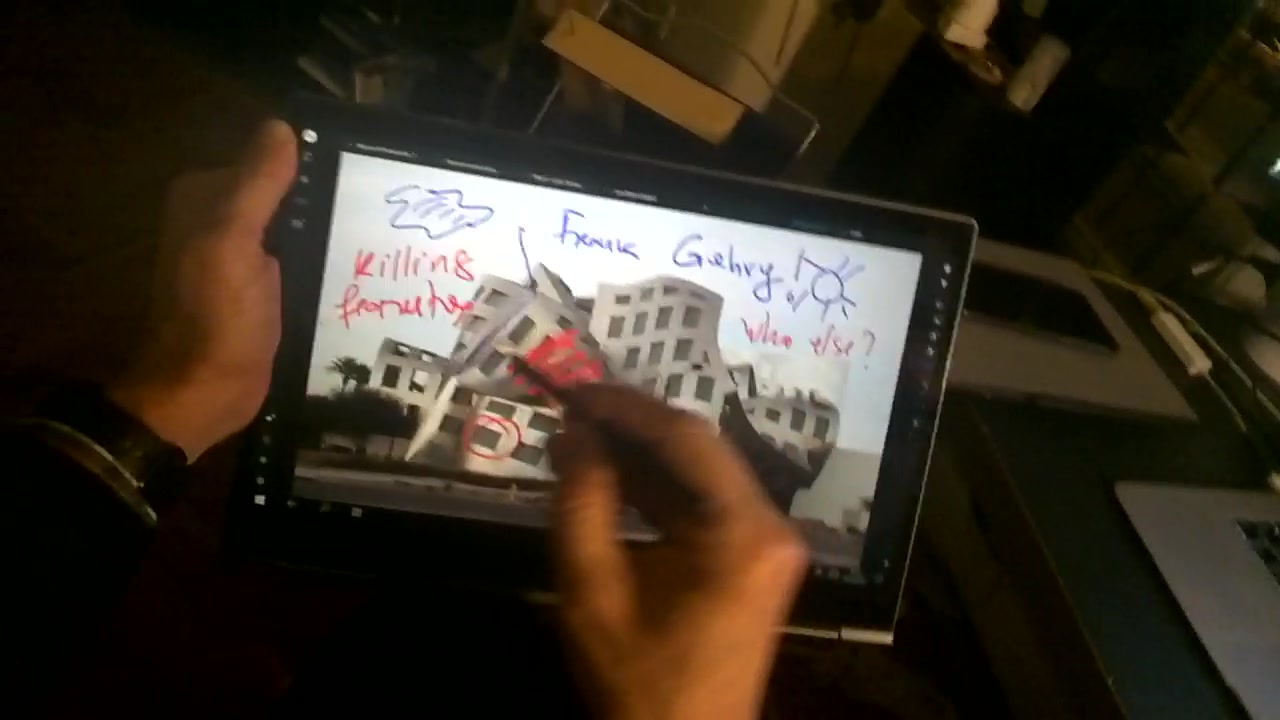 Frank Gehry!
Killing
from the top
Who else?